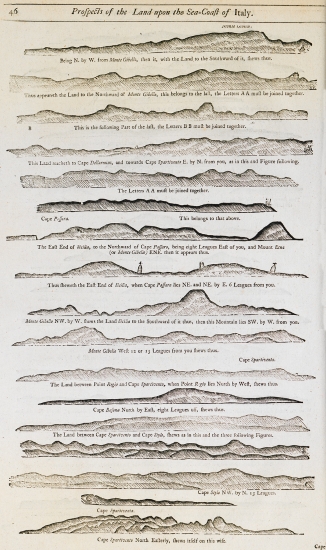 46
Prospects of the Land upon the Sea-Coast of Italy.
Being N. by W. from Monte Gibello, then it, with the Land to the Southward of it, shews thus.
Thus appeareth the Land to the Northward of Monte Gibello, this belongs to the last, the Letters A A must be joined together.
B
This is the following Part of the last, the Letters B B must be joined together.
This Land reacheth to Cape and towards Cape Spartivento E. by N. from you, as in this and Figure following.
The Letters A A must be joined together.
Cape Passaro. This belongs to that above.
The East End of Sicilia, to the Northward of Cape Passaro, being eight Leagues East of you, and Mount Etna
(or Monte Gibello) ENE. then it appears thus.
Thus sheweth the East End of Sicilia, when Cape Passaro lies NE. and NE. by E. 6 Leagues from you.
Monte Gibello NW. by W. shews the Land Sicilia to the Southward of it thus, then this Mountain lies SW. by W. from you.
Monte Gibello West 12 or 13 Leagues from you shews thus.
Cape Spartivento.
The Land between Point Regio and Cape Spartivento, when Point Regio lies North by West, shews thus.
Cape North by East, eight Leagues off, shews thus.
The Land between Cape Spartivento and Cape Stylo, shews as in this and the three following Figures.
Cape Stylo N.W. by N. 15 Leagues.
Cape Spartivento.
Cape Spartivento North Easterly, shews itself on this wise.
Cape